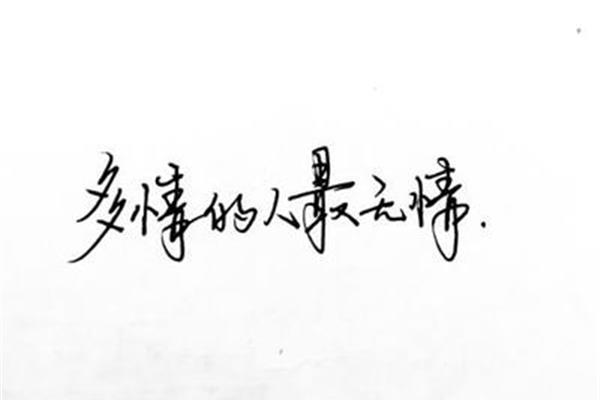 多情的人最无情.